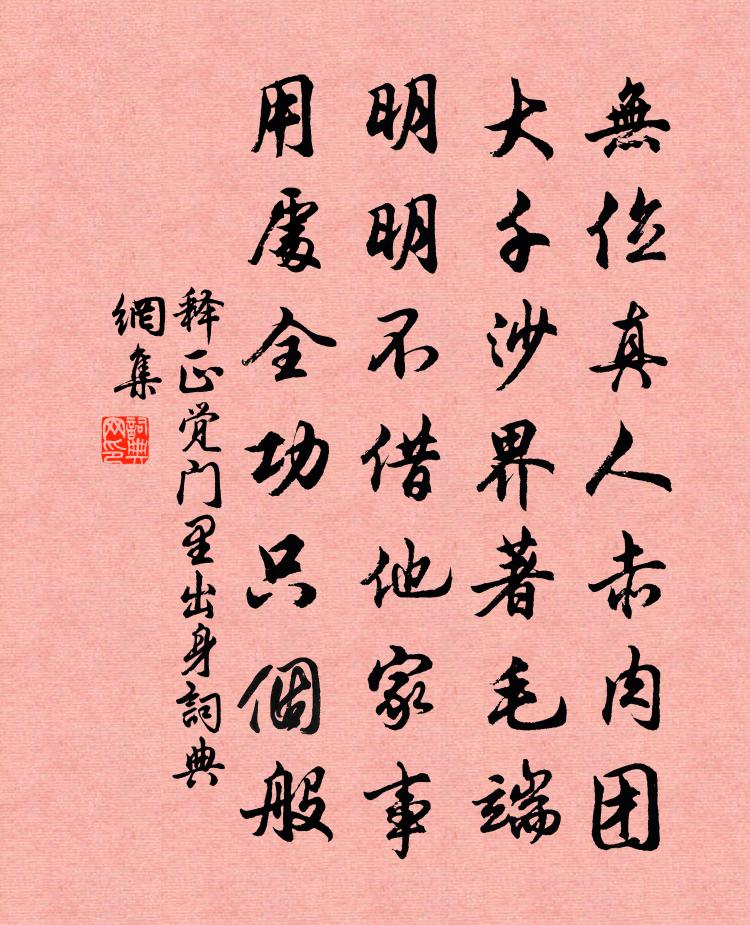 無位真人赤肉团
大千沙界著毛端
明明不借他家事
用處全功只個般
释正觉门里出身詞典
網集
詞典
网印